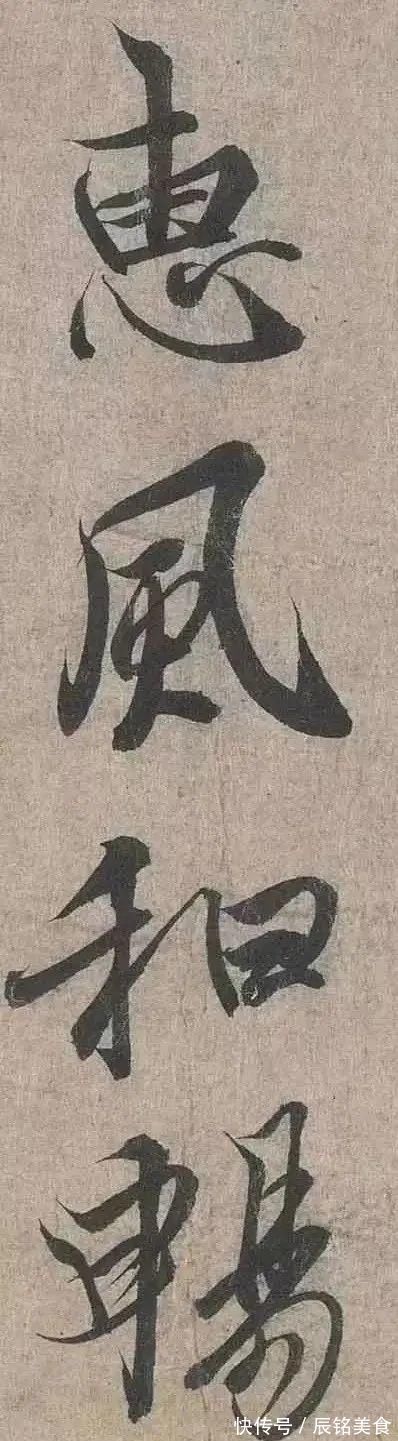 惠風和暢
快传号/辰铭美食